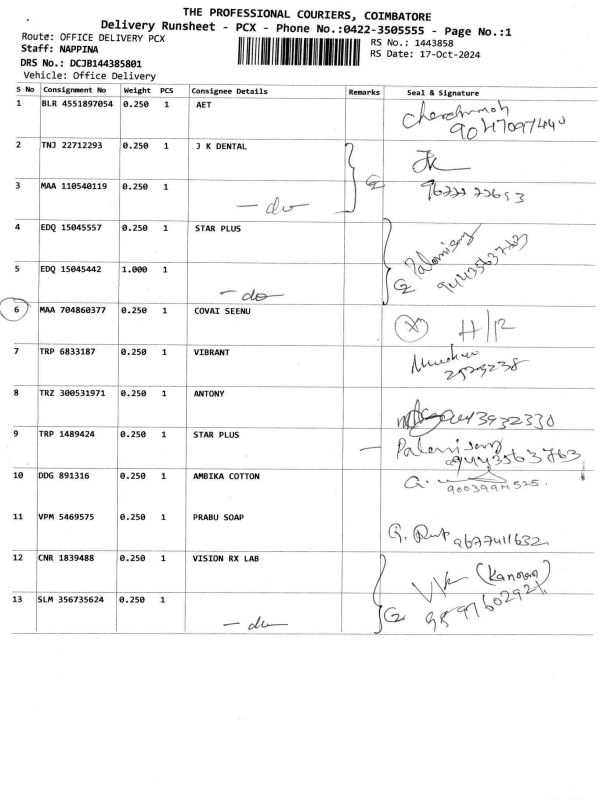 THE PROFESSIONAL COURIERS, COIMBATORE
Delivery Runsheet - PCX - Phone No.:0422-3505555 - Page No.:1
Route: OFFICE DELIVERY PCX
RS No.: 1443858
Staff: NAPPINA
RS Date: 17-Oct-2024
DRS No.: DCJB144385801
Vehicle: Office Delivery
S No Consignment No Weight PCS Consignee Details Remarks Seal & Signature
1 BLR 4551897054 0.250 1 AET
2 TNJ 22712293 0.250 1 J K DENTAL
3 MAA 110540119 0.250 1
- do
4 EDQ 15045557 0.250 1 STAR PLUS
9443563763
5 EDQ 15045442 1.000 1
- do
6 MAA 704860377 0.250 1 COVAI SEENU
7 TRP 6833187 0.250 1 VIBRANT
8 TRZ 300531971 0.250 1 ANTONY
9 TRP 1489424 0.250 1 STAR PLUS
9443563763
10 DDG 891316 0.250 1 AMBIKA COTTON
11 VPM 5469575 0.250 1 PRABU SOAP
9677411632
12 CNR 1839488 0.250 1 VISION RX LAB
13 SLM 356735624 0.250 1
- do